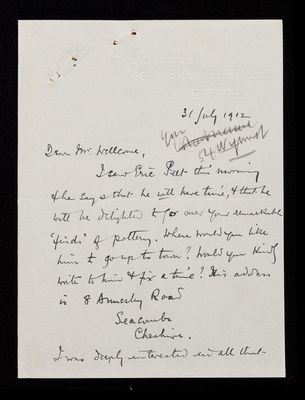 31 July 1912
54 Wigmore St
Dear Mr. Wellcome,
I saw Eric Peet this morning
& he says that he will have time, & that he
will be delighted to go over your remarkable
'finds' of pottery. When would you like
him to go up to town? Would you kindly
write to him & fix a time? His address
is 8 Annesley Road
Seacombe
Cheshire.
I was deeply interested in all that